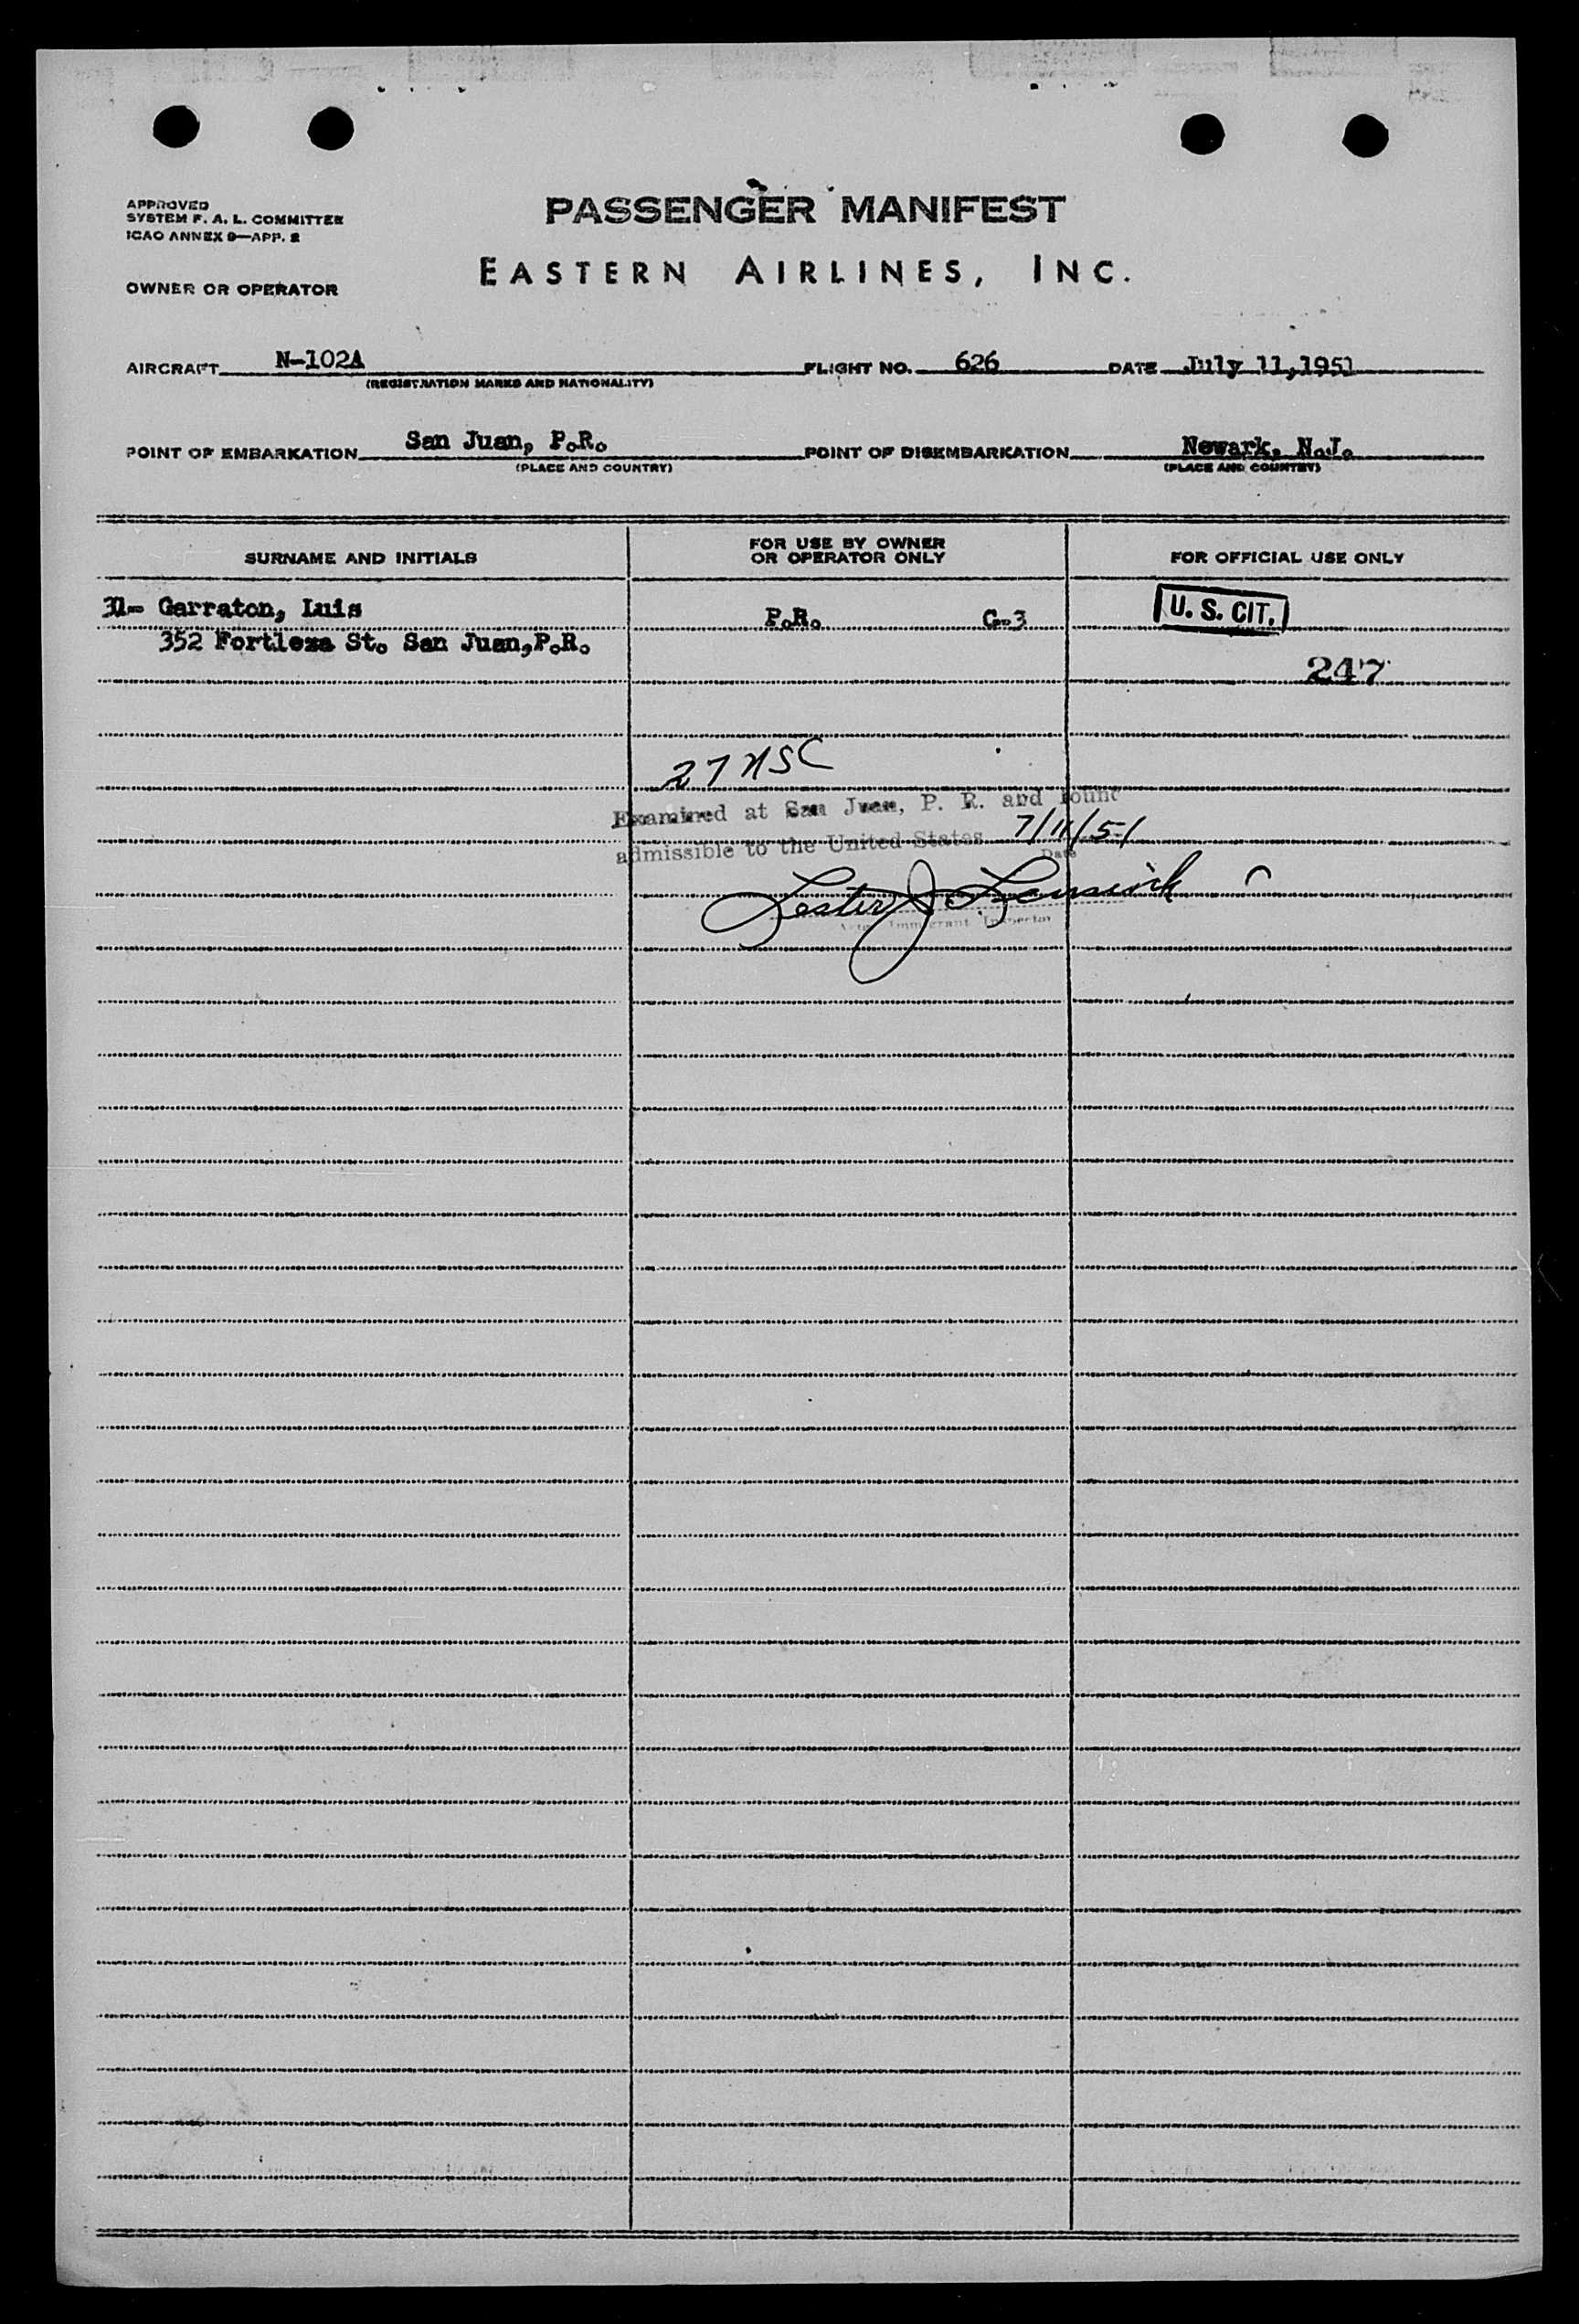 APPROVED
SYSTEM F. A. L. COMMITTEE
ICAO ANNEX 9—APP. 2
PASSENGER MANIFEST
EASTERN AIRLINES, INC.
OWNER OR OPERATOR
AIRCRAFT N-102A FLIGHT NO. 626 DATE July 11,1951
(REGISTRATION MARKS AND NATIONALITY)
POINT OF EMBARKATION San Juan, P.R. POINT OF DISEMBARKATION Newark, N.J.
(PLACE AND COUNTRY) (PLACE AND COUNTRY)
SURNAME AND INITIALS FOR USE BY OWNER OR OPERATOR ONLY FOR OFFICIAL USE ONLY
31- Garraton, Luis P.R. C-3 U. S. CIT.
352 Fortleza St. San Juan,P.R. 247
27 USC
Examined at San Juan, P. R. and found
admissible to the United States 7/11/51
Date
Lester J
Immigrant Inspector